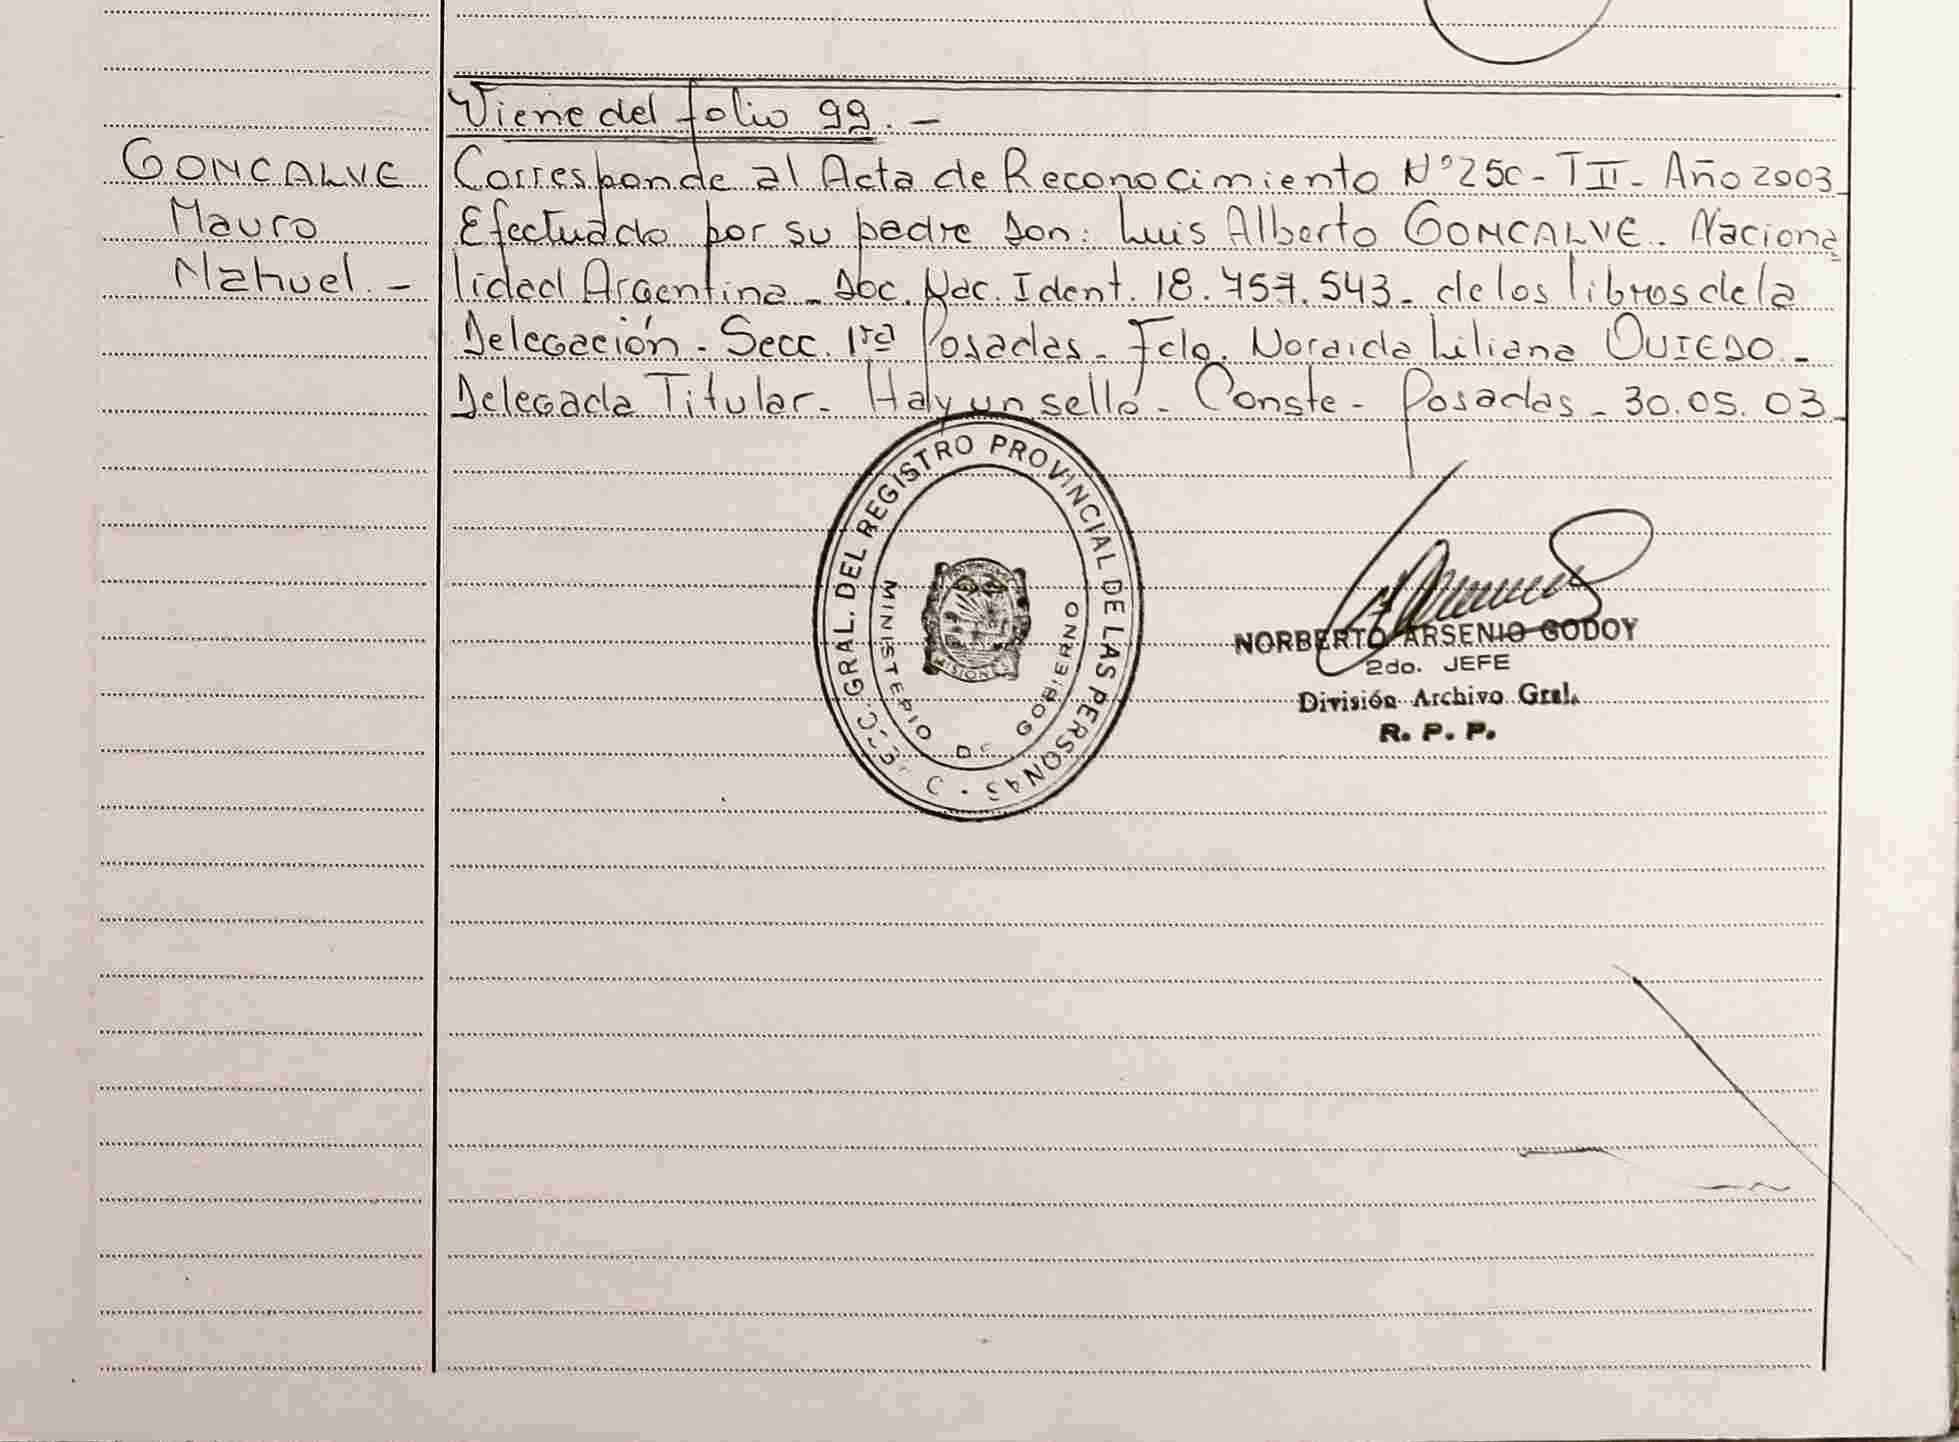 Viene del folio 99. -
GONCALVE Corresponde al Acta de Reconocimiento Nº 250 - T II - Año 2003 -
Mauro Efectuado por su padre Don: Luis Alberto GONCALVE. Naciona
Nahuel. - lidad Argentina - Doc. Nac. Ident. 18.757.543 - de los libros de la
Delegación - Secc. 1ra Posadas - Fdo. Noraida Liliana OVIEDO -
Delegada Titular - Hay un sello - Conste - Posadas - 30.05.03 -
GRAL. DEL REGISTRO PROVINCIAL DE LAS PERSONAS
MINISTERIO DE GOBIERNO
MISIONES
NORBERTO ARSENIO GODOY
2do. JEFE
División Archivo Gral.
R. P. P.